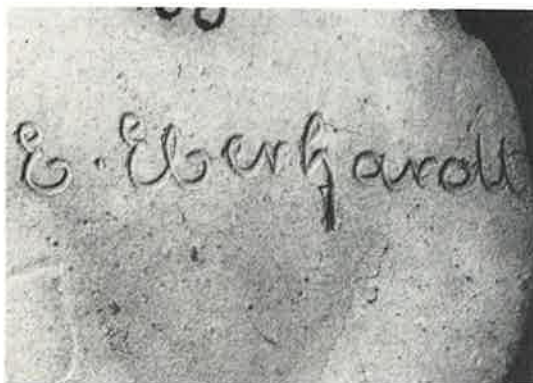 E. Eberhardt